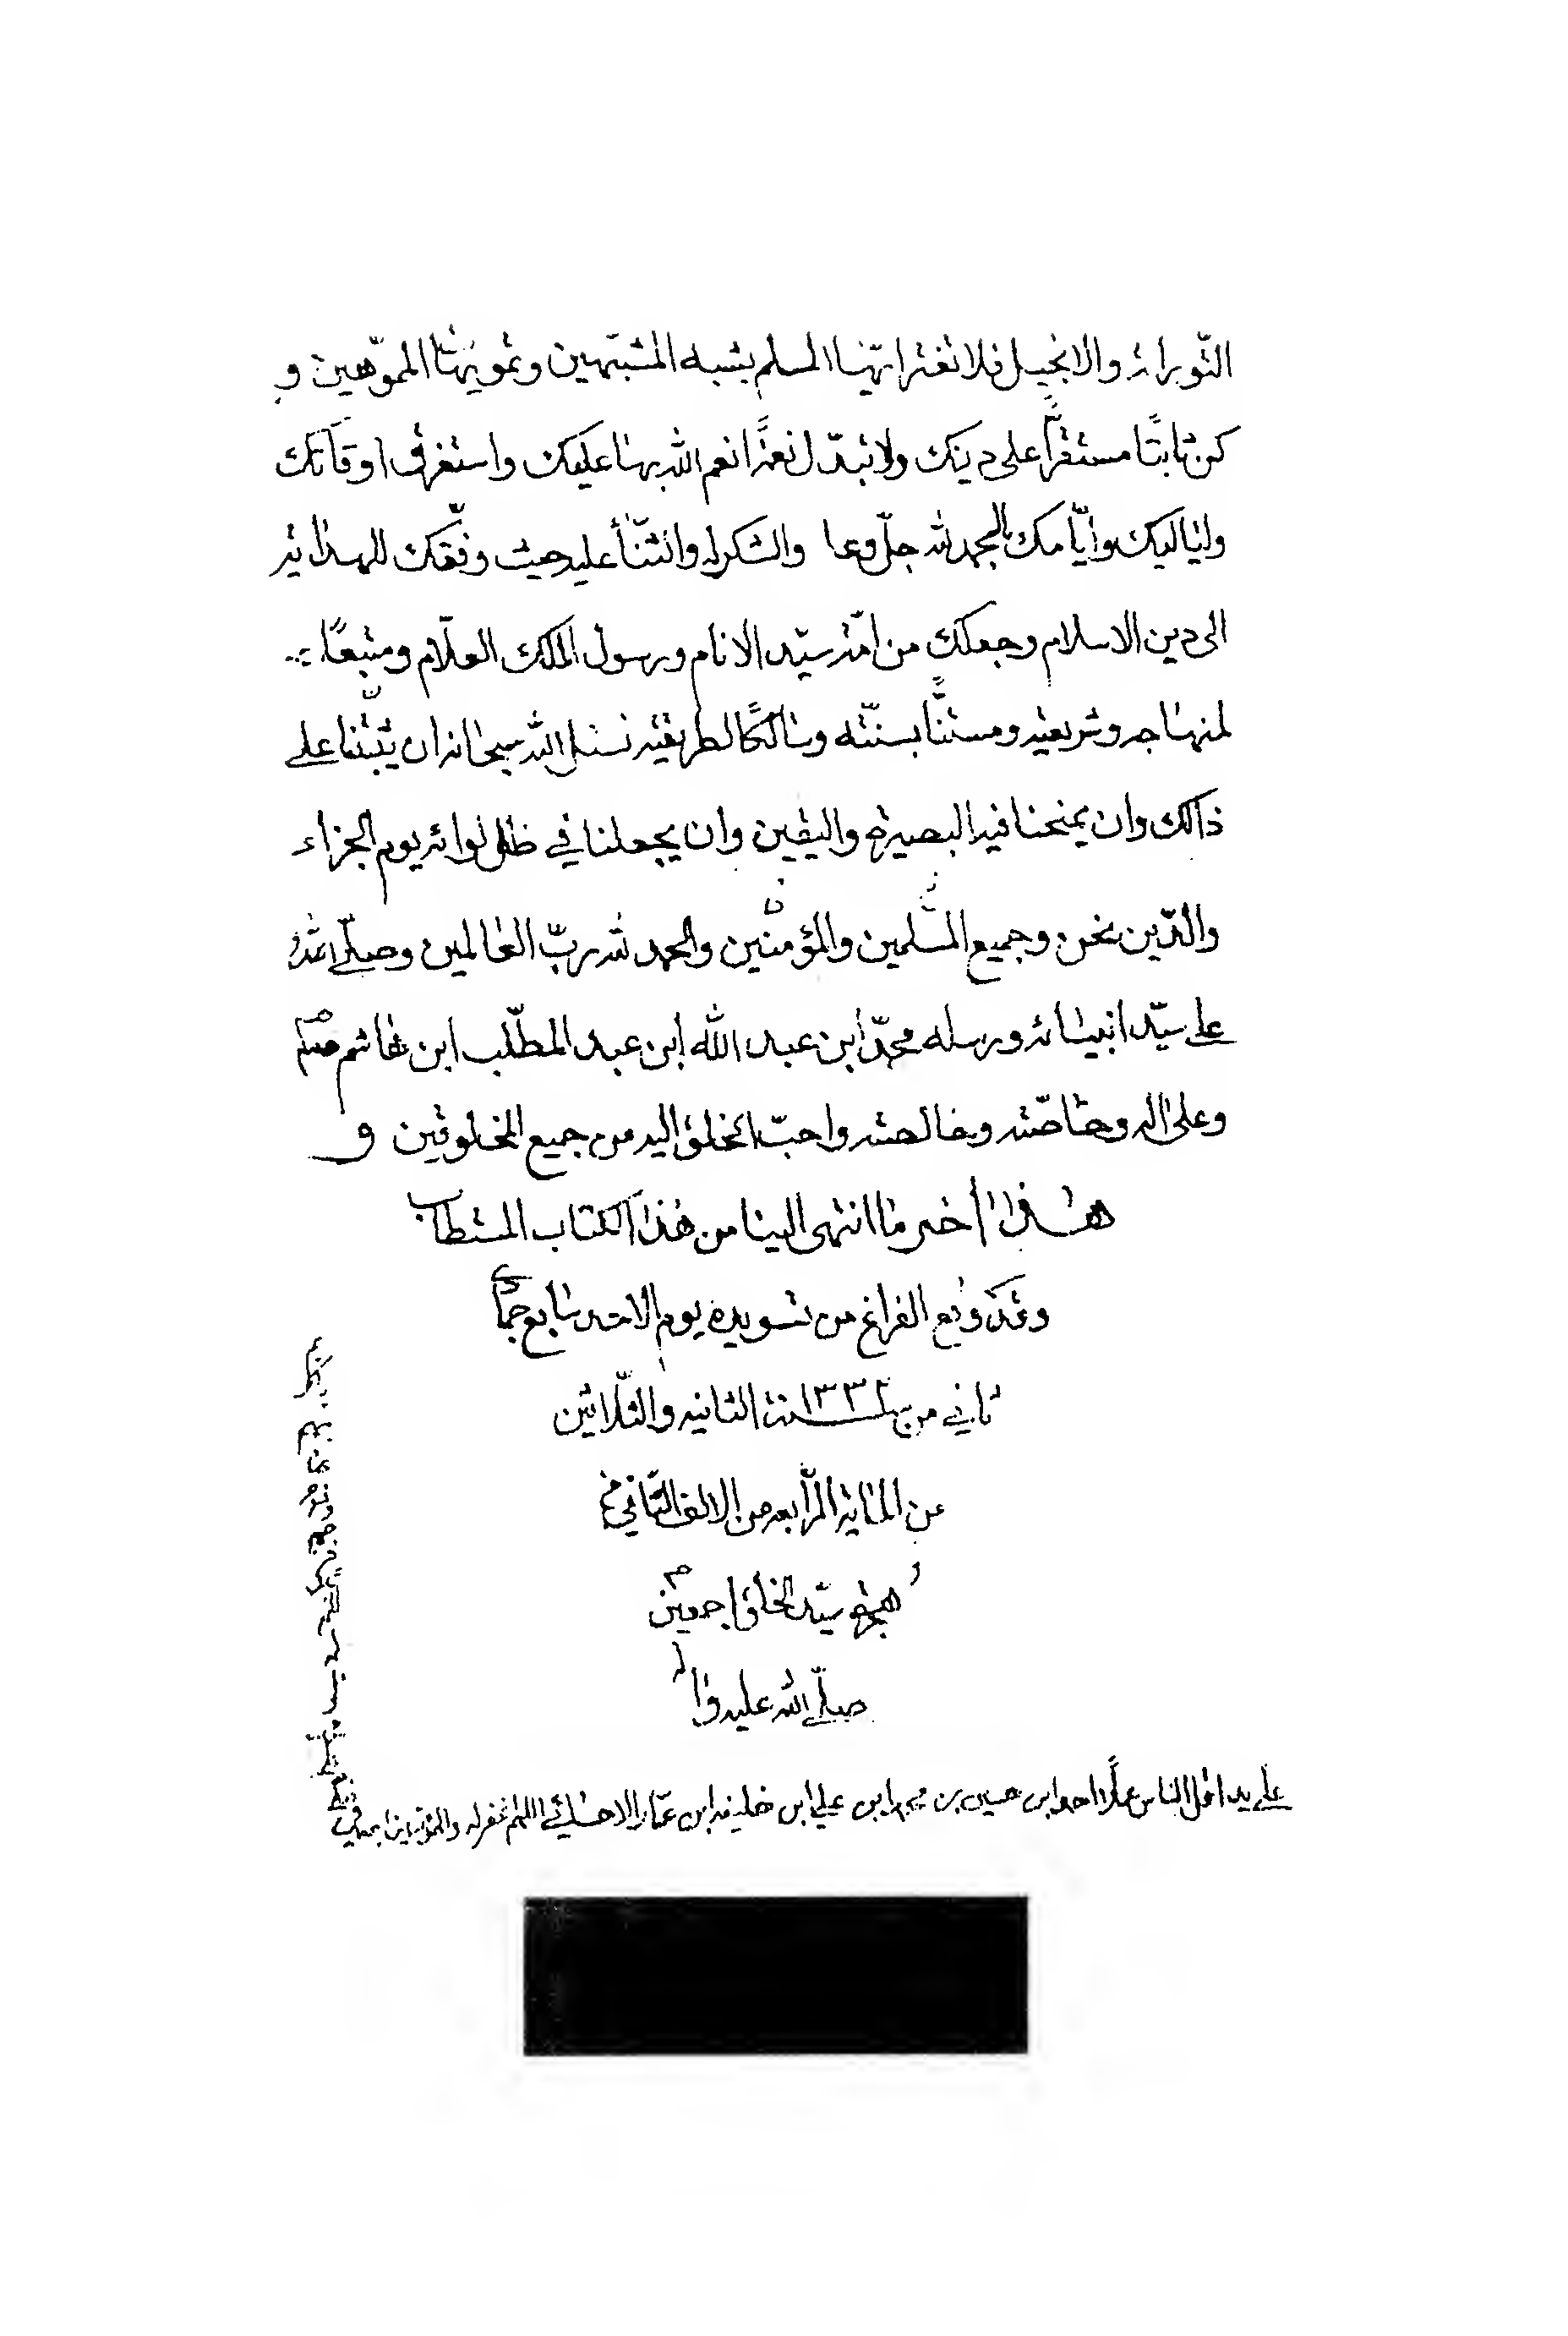 التّوراة والانجيل فلا تغتر ايّها المسلم بشبه المشبّهين وتمويهات المموّهين و
كن ثابتًا مستقرًّا على دينك ولا تبدّل نعمةً انعم الله بها عليك واستغرق اوقاتك
ولياليك وايّامك بالحمد لله جلّ وعلا والشكر له والثّناء عليه حيث وفّقك للهداية
الى دين الاسلام وجعلك من امّة سيّد الانام ورسول الملك العلّام ومتبعًا
لمنهاجه وشريعته ومستنًّا بسنّته وسالكًا لطريقته نسئل الله سبحانه ان يثبّتنا على
ذالك وان يمنحنا فيه البصيرة واليقين وان يجعلنا في ظل لوائه يوم الجزاء
والدّين نحن وجميع المسلمين والمؤمنين والحمد لله ربّ العالمين وصلّى الله
على سيّد انبيائه ورسله محمّد ابن عبد الله ابن عبد المطّلب ابن هاشم صلعم
وعلى اله وخاصّته وخالصته واحبّ الخلق اليه من جميع المخلوقين و
هذا أخر ما انتهى الينا من هذا الكتاب المستطاب
وقد وقع الفراغ من تسويده يوم الاحد سابع جمادى
ثاني من سنة ١٣٣٢ الثانيه والثّلاثين
من المائة الرّابعه من الالف الثّاني من
هجرة سيّد الخلق اجمعين
صلّى الله عليه واله
على يد اقل الناس عملًا احمد ابن حسين بن محمد ابن علي ابن خليفه ابن عمّار الاحسائي اللهم اغفر له